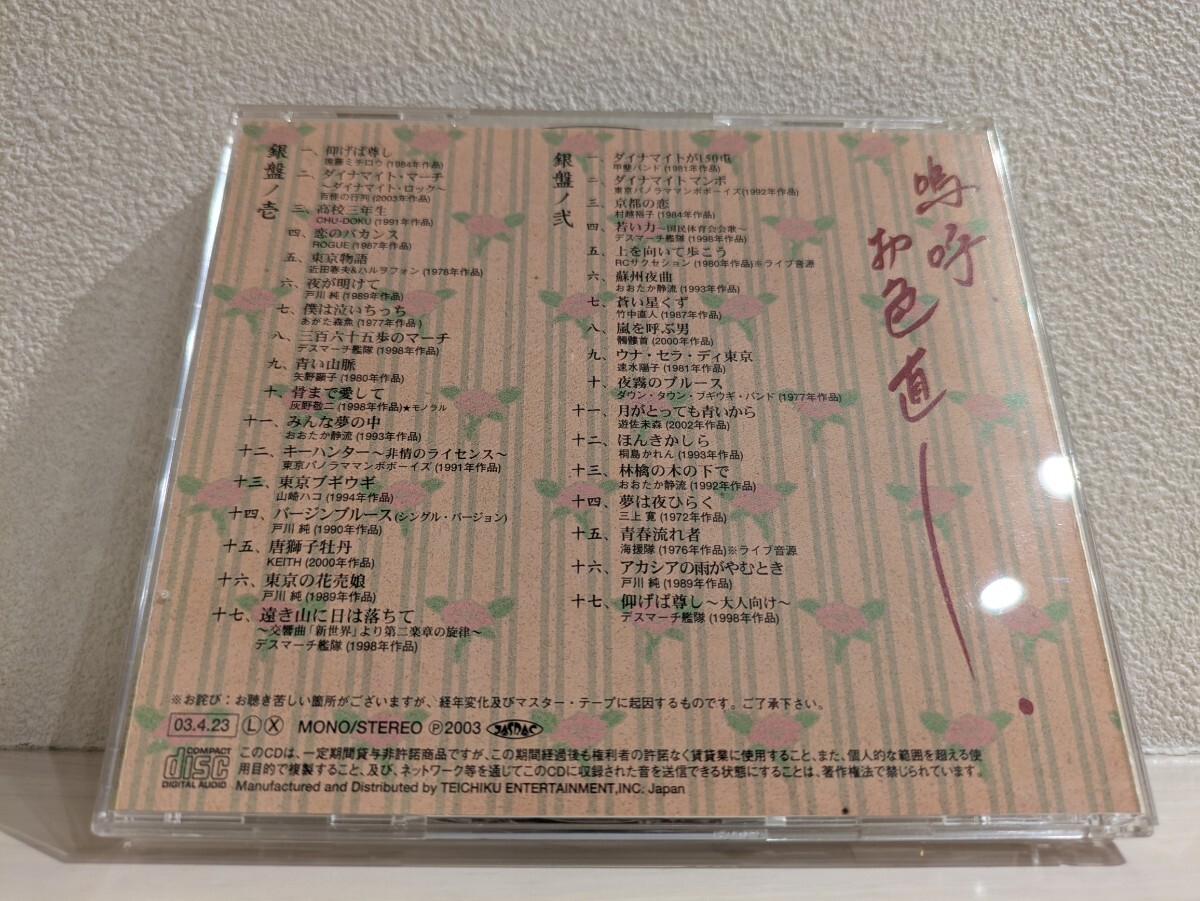 嗚呼
お色直し
銀盤ノ壱
一、仰げば尊し
遠藤ミチロウ(1984年作品)
二、ダイナマイト・マーチ
～ダイナマイト・ロック～
百怪の行列(2003年作品)
三、高校三年生
CHU-DOKU(1991年作品)
四、恋のバカンス
ROGUE(1987年作品)
五、東京物語
近田春夫&ハルヲフォン(1978年作品)
六、夜が明けて
戸川 純(1989年作品)
七、僕は泣いちっち
あがた森魚(1977年作品)
八、三百六十五歩のマーチ
デスマーチ艦隊(1998年作品)
九、青い山脈
矢野顕子(1980年作品)
十、骨まで愛して
灰野敬二(1998年作品)★モノラル
十一、みんな夢の中
おおたか静流(1993年作品)
十二、キーハンター～非情のライセンス～
東京パノラママンボボーイズ(1991年作品)
十三、東京ブギウギ
山崎ハコ(1994年作品)
十四、バージンブルース(シングル・バージョン)
戸川 純(1990年作品)
十五、唐獅子牡丹
KEITH(2000年作品)
十六、東京の花売娘
戸川 純(1989年作品)
十七、遠き山に日は落ちて
～交響曲「新世界」より第二楽章の旋律～
デスマーチ艦隊(1998年作品)
銀盤ノ弐
一、ダイナマイトが150屯
甲斐バンド(1981年作品)
二、ダイナマイトマンボ
東京パノラママンボボーイズ(1992年作品)
三、京都の恋
村越裕子(1984年作品)
四、若い力～国民体育会会歌～
デスマーチ艦隊(1998年作品)
五、上を向いて歩こう
RCサクセション(1980年作品)※ライブ音源
六、蘇州夜曲
おおたか静流(1993年作品)
七、蒼い星くず
竹中直人(1987年作品)
八、嵐を呼ぶ男
髑髏首(2000年作品)
九、ウナ・セラ・ディ東京
速水陽子(1981年作品)
十、夜霧のブルース
ダウン・タウン・ブギウギ・バンド(1977年作品)
十一、月がとっても青いから
遊佐未森(2002年作品)
十二、ほんきかしら
桐島かれん(1993年作品)
十三、林檎の木の下で
おおたか静流(1992年作品)
十四、夢は夜ひらく
三上 寛(1972年作品)
十五、青春流れ者
海援隊(1976年作品)※ライブ音源
十六、アカシアの雨がやむとき
戸川 純(1989年作品)
十七、仰げば尊し～大人向け～
デスマーチ艦隊(1998年作品)
※お詫び：お聴き苦しい箇所がございますが、経年変化及びマスター・テープに起因するものです。ご了承下さい。
03.4.23 Ⓛ Ⓧ MONO/STEREO ℗2003 JASRAC
COMPACT disc DIGITAL AUDIO
このCDは、一定期間貸与非許諾商品ですが、この期間経過後も権利者の許諾なく賃貸業に使用すること、また、個人的な範囲を超える使
用目的で複製すること、及び、ネットワーク等を通じてこのCDに収録された音を送信できる状態にすることは、著作権法で禁じられています。
Manufactured and Distributed by TEICHIKU ENTERTAINMENT,INC. Japan